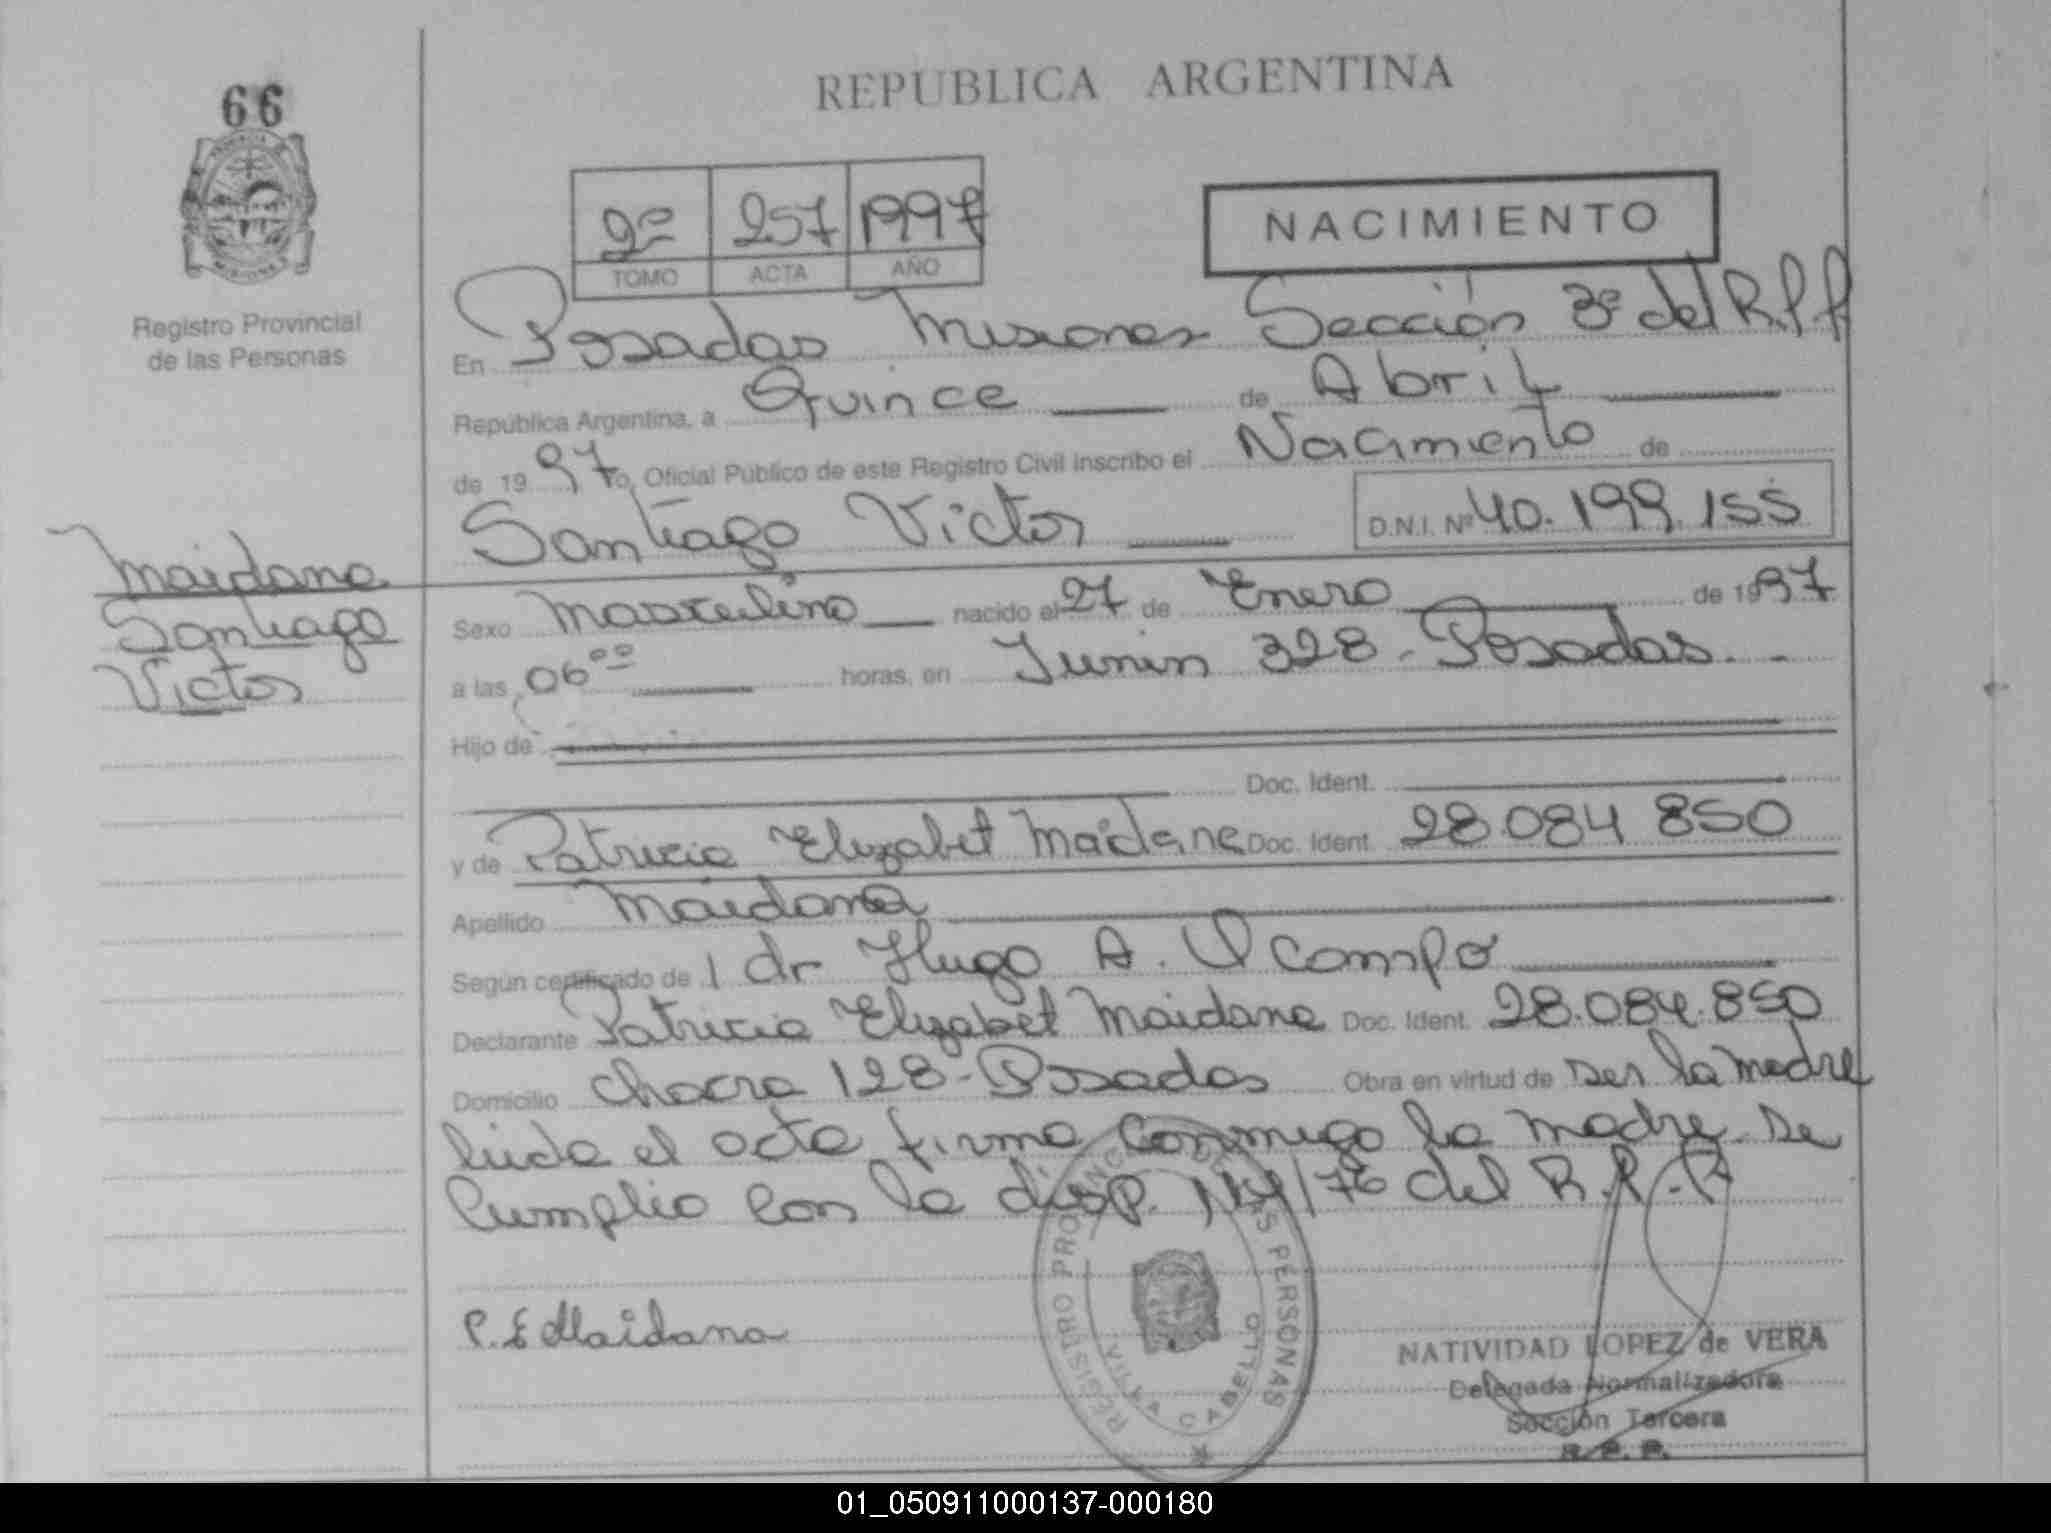 66
REPUBLICA ARGENTINA
2º 257 1997
TOMO ACTA AÑO
NACIMIENTO
PROVINCIA
MISIONES
Registro Provincial
de las Personas
En Posadas Misiones Sección 3º del R.P.P
República Argentina, a Quince de Abril
de 1997 yo, Oficial Público de este Registro Civil inscribo el Nacimiento de
Santiago Victor D.N.I. Nº 40.199.155
Maidana
Santiago
Victor
Sexo Masculino nacido el 27 de Enero de 1997
a las 06ºº horas, en Junin 328 - Posadas. -
Hijo de
Doc. Ident.
y de Patricia Elizabet Maidana Doc. Ident. 28.084 850
Apellido Maidana
Según certificado de 1 dr Hugo A. Ocampo
Declarante Patricia Elizabet Maidana Doc. Ident. 28.084.850
Domicilio Chacra 128 - Posadas Obra en virtud de ser la madre
leida el acta firma conmigo la madre se
Cumplio con la disp. /76 del R.P.P
P. E Maidana
REGISTRO PROVINCIAL DE LAS PERSONAS
VILLA CABELLO
NATIVIDAD LOPEZ de VERA
Delegada Normalizadora
Sección Tercera
R. P. P.
01_050911000137-000180